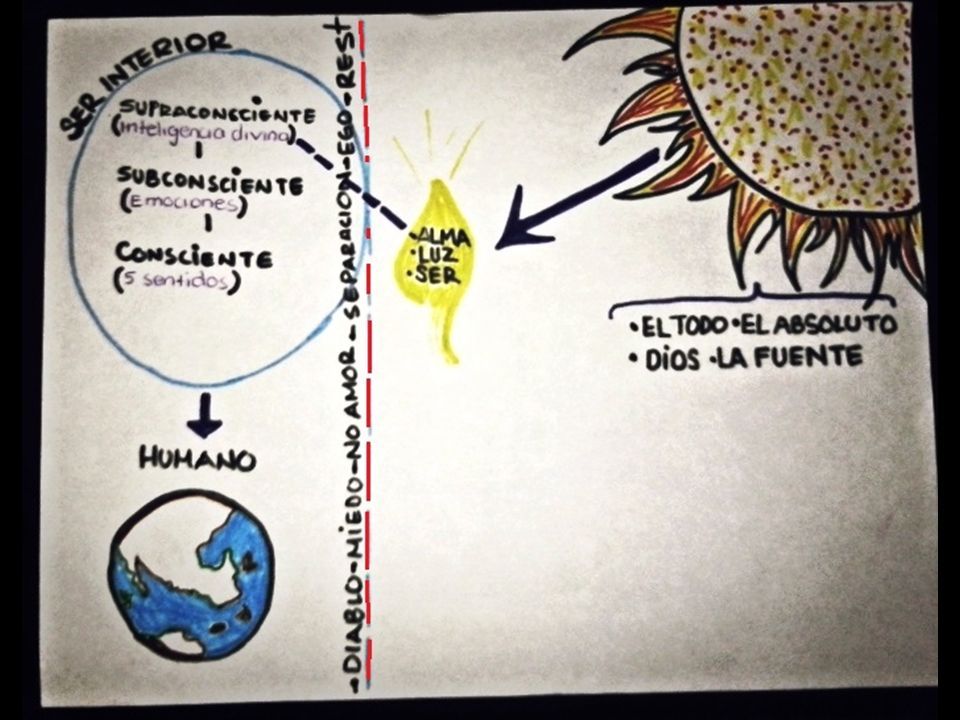 SER INTERIOR
SUPRACONSCIENTE
(inteligencia divina)
SUBCONSCIENTE
(Emociones)
CONSCIENTE
(5 sentidos)
HUMANO
-DIABLO-MIEDO-NO AMOR-SEPARACION-EGO-REST
•ALMA
•LUZ
•SER
•EL TODO •EL ABSOLUTO
•DIOS •LA FUENTE